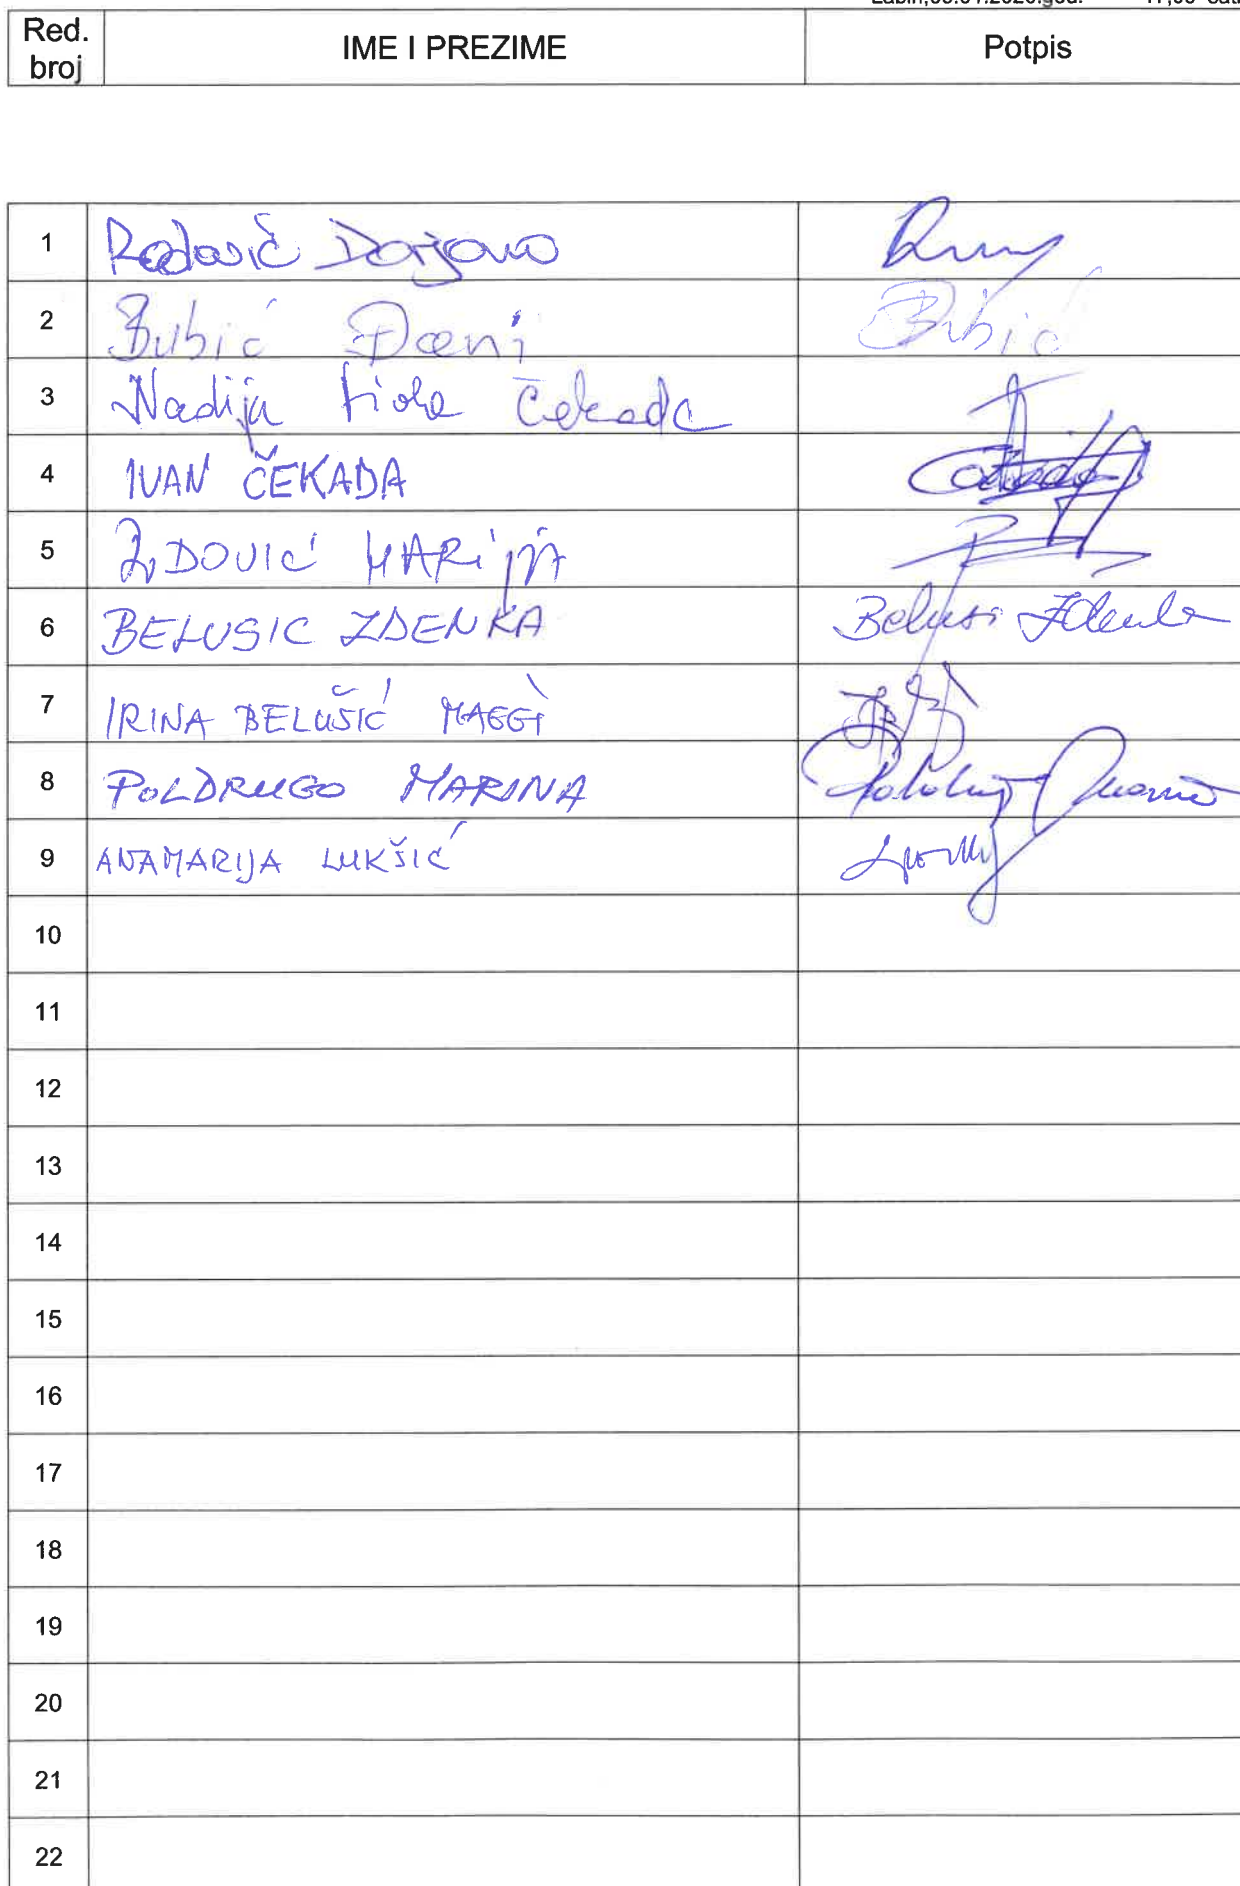 Red. broj IME I PREZIME Potpis
1 Radović Dorjano
2 Bubić Đani Bubić
3 Nadija Fiore Čekada
4 IVAN ČEKADA
5 MARIJA
6 BELUSIC ZDENKA Belusi Zdenka
7 IRINA BELUŠIĆ MAGGI
8 POLDRUGO MARINA
9 ANAMARIJA LUKŠIĆ
10
11
12
13
14
15
16
17
18
19
20
21
22